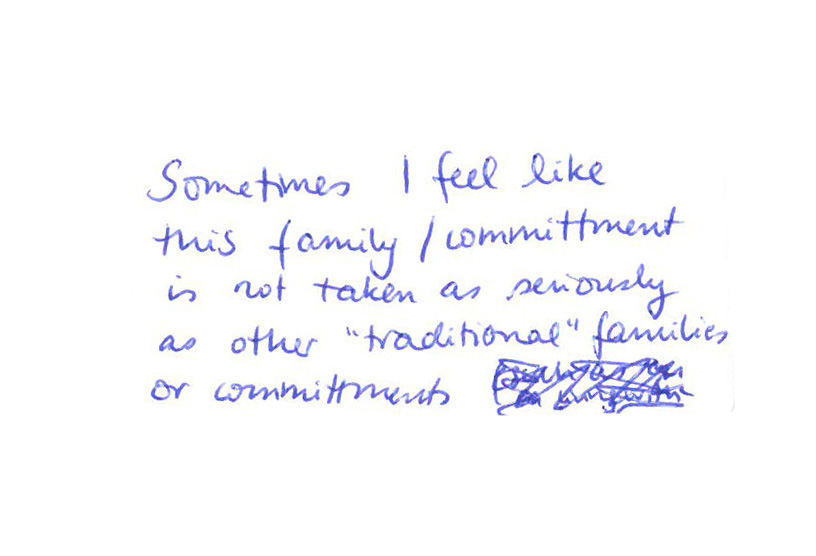 Sometimes I feel like
this family / committment
is not taken as seriously
as other "traditional" families
or committments